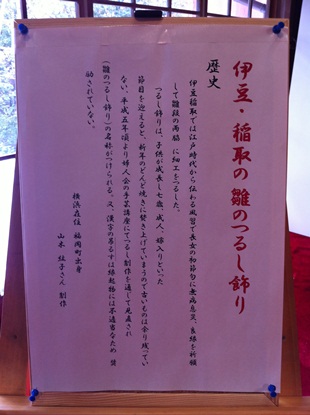 伊豆・稲取の雛のつるし飾り
歴史
伊豆稲取では江戸時代から伝わる風習で長女の初節句に無病息災、良縁を祈願
して雛段の両脇に細工をつるした。
つるし飾りは、子供が成長し七歳、成人、嫁入りといった
節目を迎えると、新年のどんど焼きに焚き上げてしまうので古いものは余り残ってい
ない。平成五年頃より婦人会の手芸講座にてつるし制作を通して見直され
(雛のつるし飾り)の名称がつけられる。又、漢字の吊るすは縁起物には不適当なため
励されていない。
横浜在住 福岡町出身
山本 紋子さん 制作